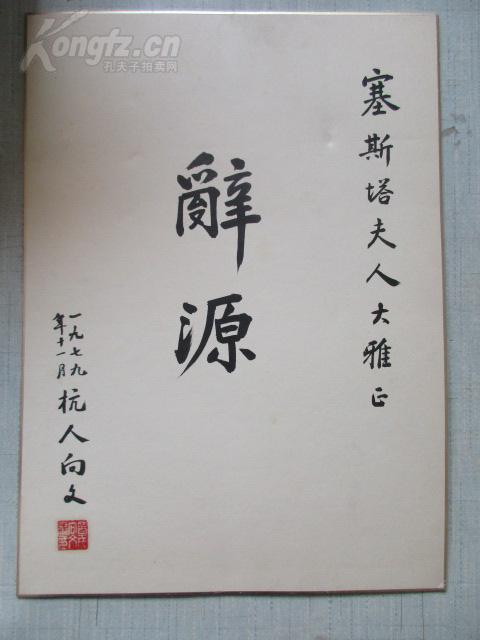 塞斯塔夫人大雅正
辭源
一九七九
年十一月
杭人向文
Kongfz.cn
孔夫子拍卖网